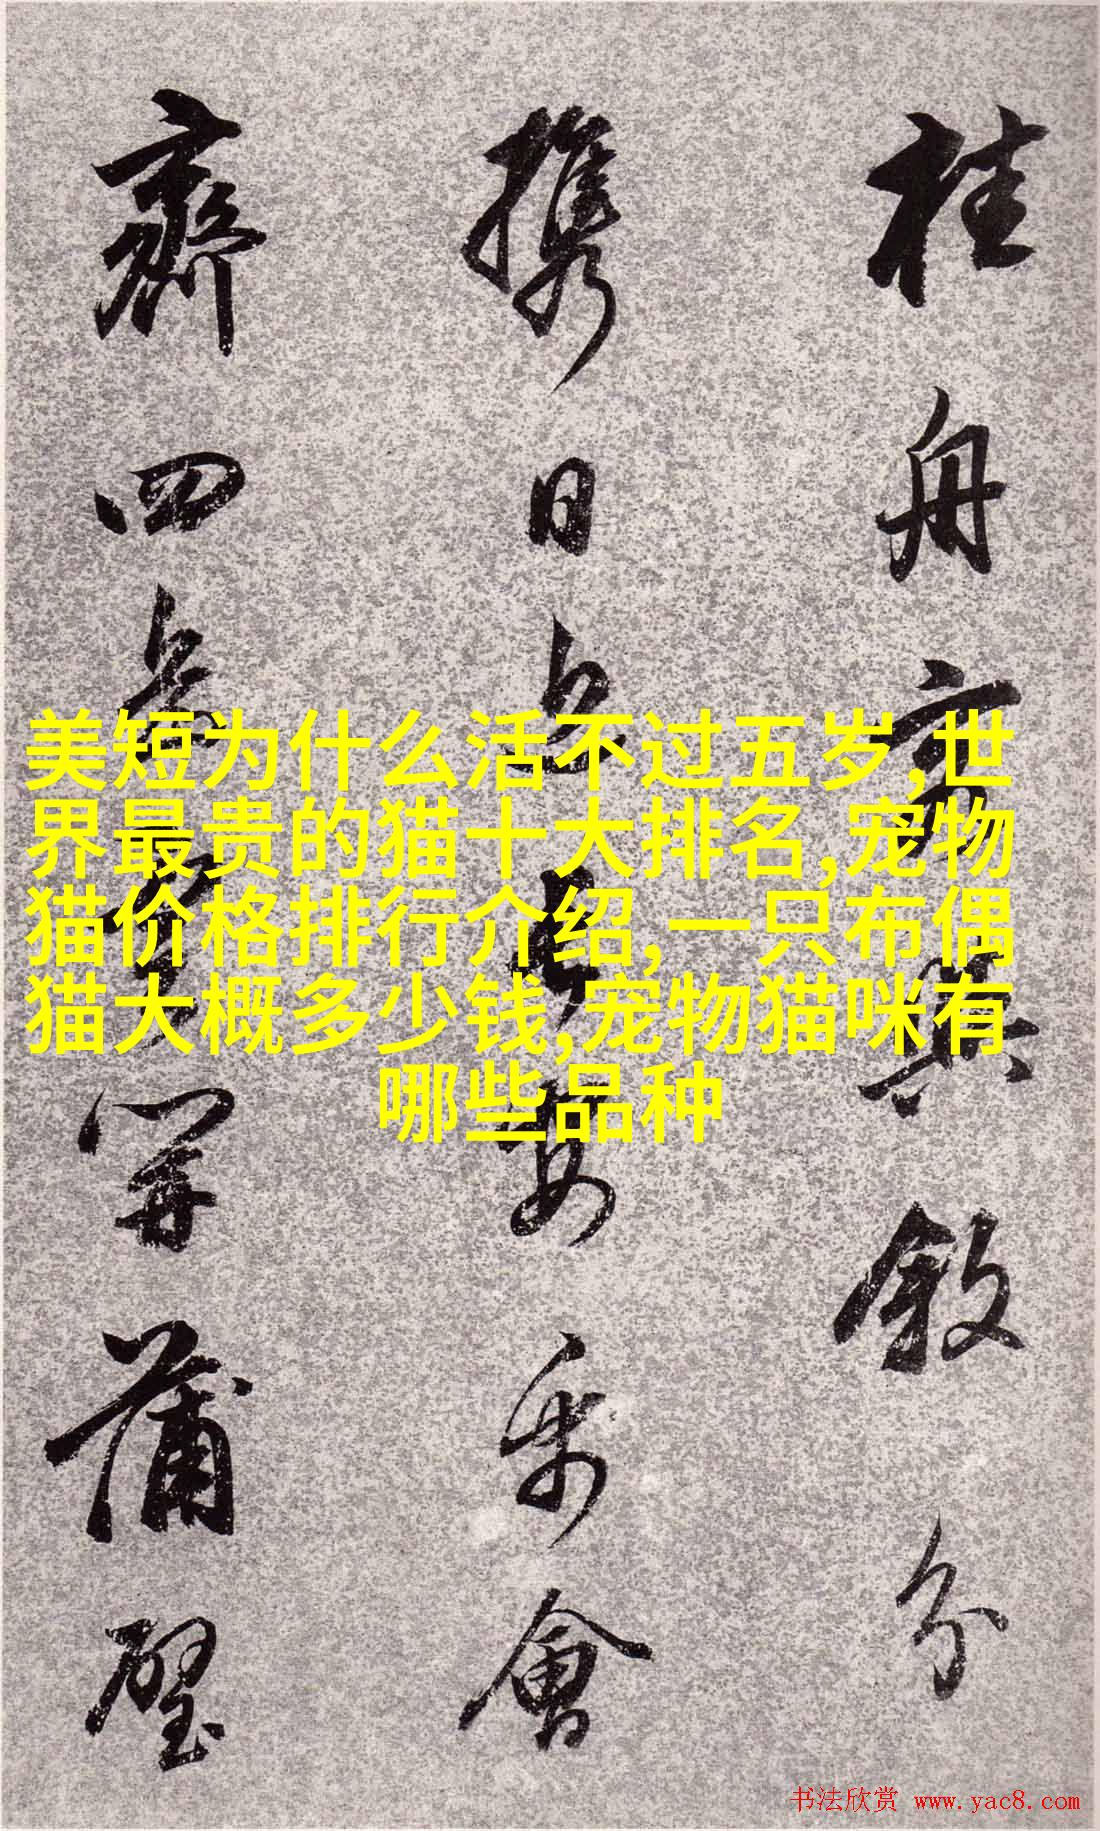 桂舟
與敘分
攜日
要乐會
齊四
開蒲璧
美短为什么活不过五岁,世
界最贵的猫十大排名,宠物
猫价格排行介绍,一只布偶
猫大概多少钱,宠物猫咪有
哪些品种
书法欣赏 www.yac8.com